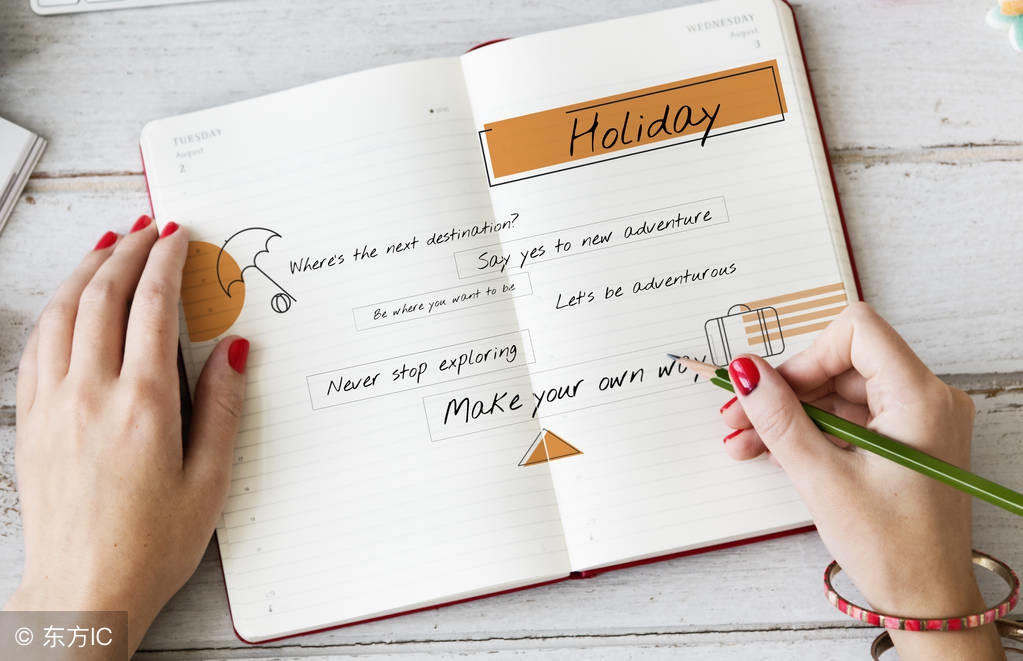 TUESDAY
August
2
WEDNESDAY
August
3
Holiday
Where's the next destination?
Say yes to new adventure
Be where you want to be
Let's be adventurous
Never stop exploring
Make your own way
© 东方IC